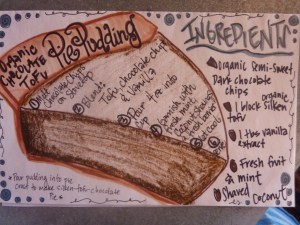 ORGANIC
CHOCOLATE
TOFU
Pie Pudding
① Melt
Chocolate Chips
on Stovetop
② Blend
Tofu, chocolate chips
& Vanilla
③ Pour into
Cup
④ Garnish with
fresh mint
fresh berries
⑤ Let Cool
* Pour pudding into pie
crust to make silken-tofu-chocolate
Pie *
INGREDIENTS
Organic Semi-Sweet
Dark chocolate
chips
organic
1 block silken
tofu
1 tbs vanilla
extract
Fresh fruit
& mint
Shaved
coconut